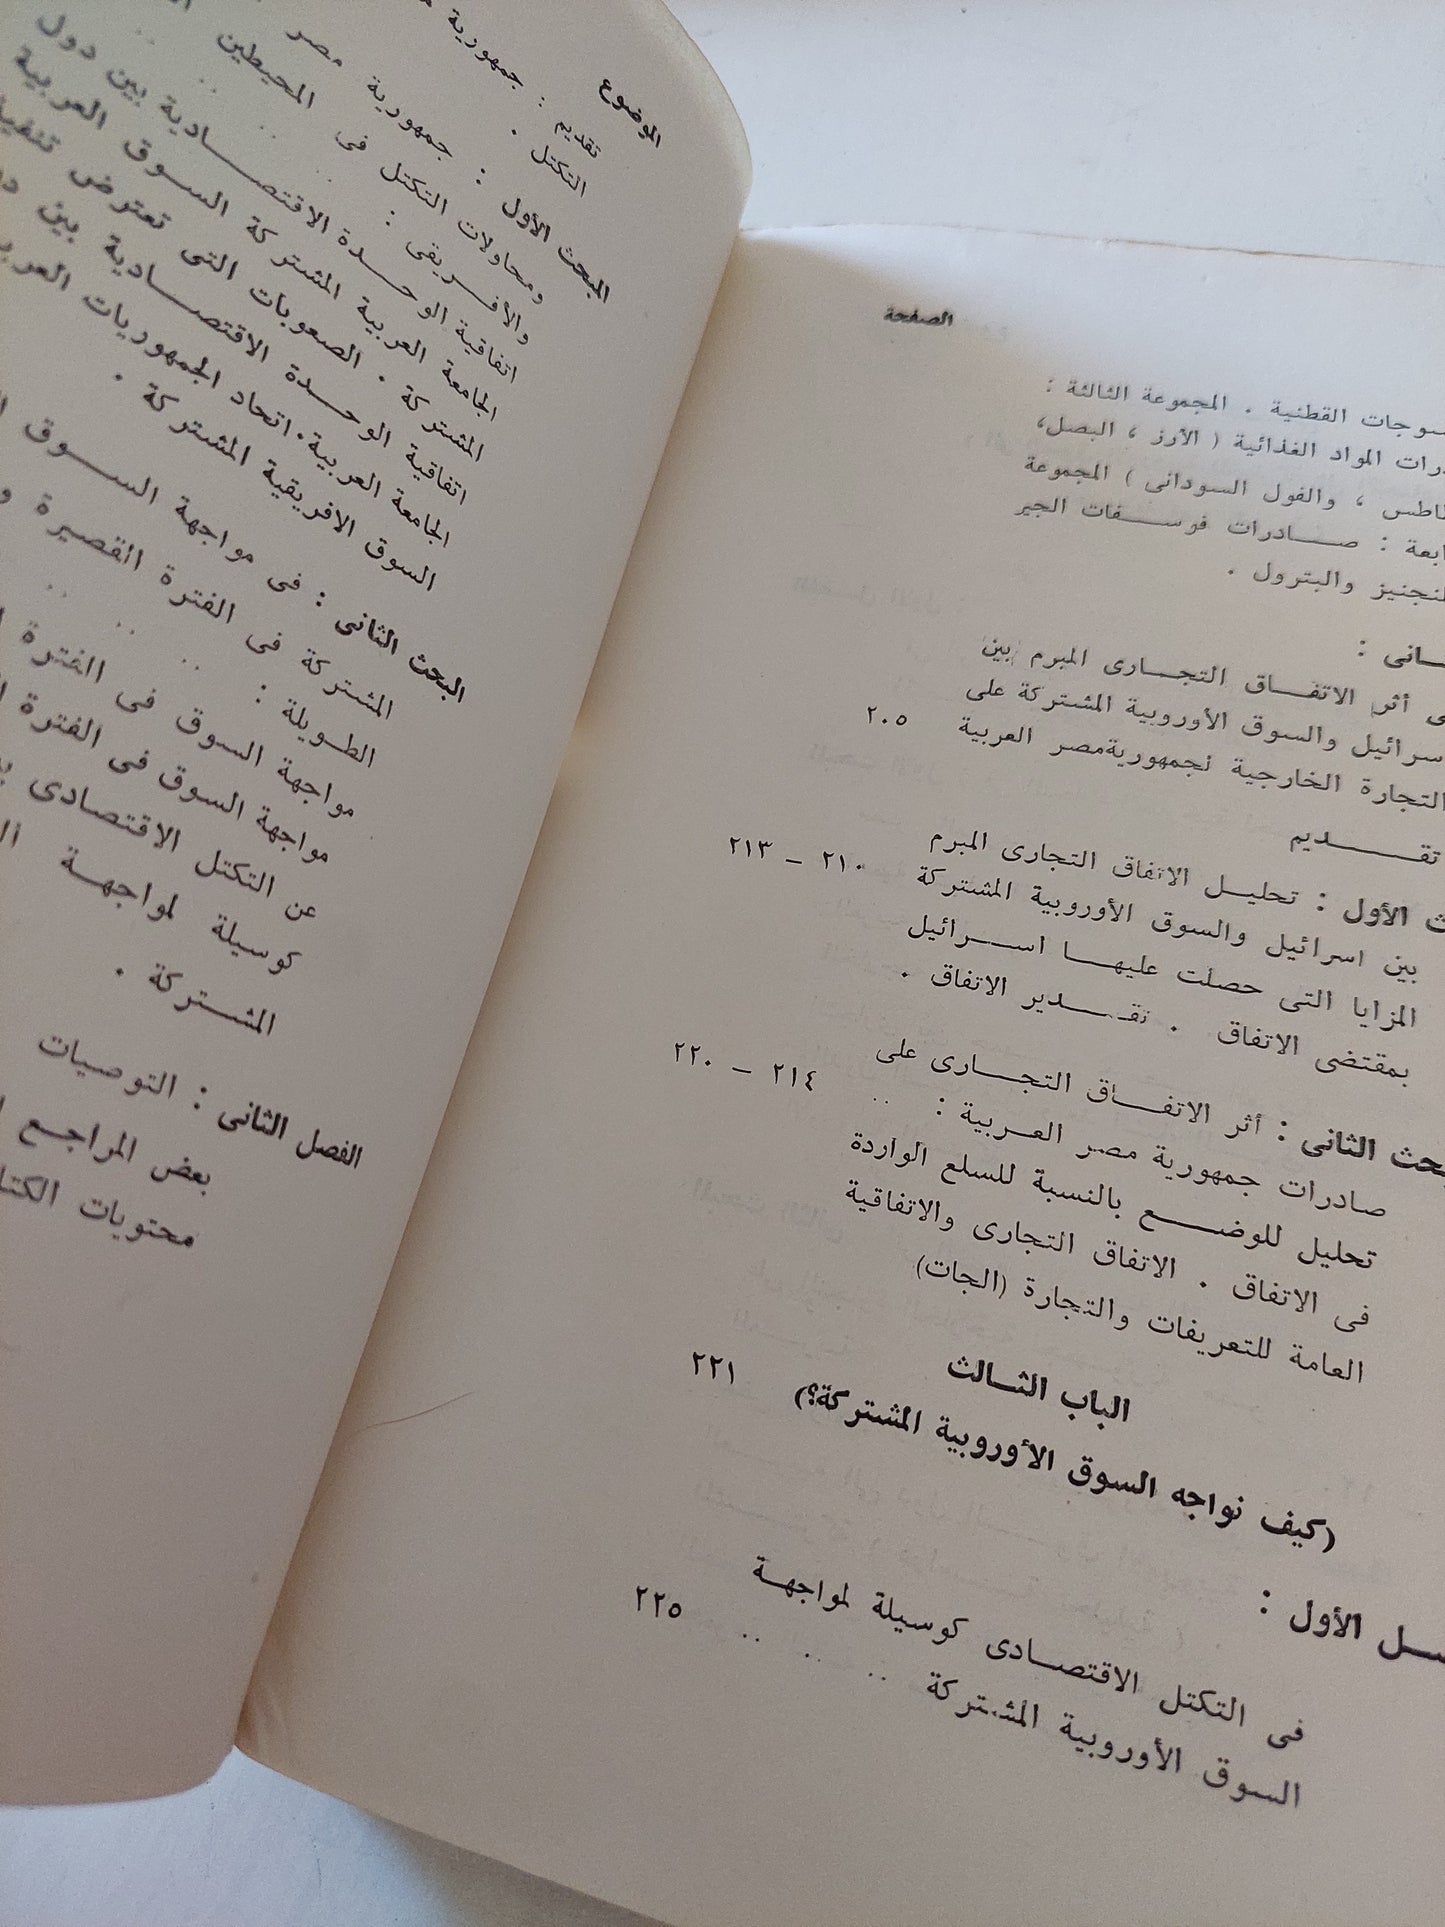 الصفحة
القطنية . المجموعة الثالثة :
المواد الغذائية ( الأرز ، البصل،
، والفول السودانى ) المجموعة
: صادرات فوسفات الجير
والبترول .
:
أثر الاتفاق التجارى المبرم بين
والسوق الأوروبية المشتركة على
التجارة الخارجية لجمهورية مصر العربية ٢٠٥
تقديم
الأول : تحليل الاتفاق التجارى المبرم ٢١٠ – ٢١٣
بين اسرائيل والسوق الأوروبية المشتركة
المزايا التى حصلت عليها اسرائيل
بمقتضى الاتفاق . تقدير الاتفاق .
الثانى : أثر الاتفاق التجارى على ٢١٤ – ٢٢٠
صادرات جمهورية مصر العربية : ..
تحليل للوضع بالنسبة للسلع الواردة
فى الاتفاق . الاتفاق التجارى والاتفاقية
العامة للتعريفات والتجارة (الجات)
الباب الثالث ٢٢١
(كيف نواجه السوق الأوروبية المشتركة؟)
الأول :
فى التكتل الاقتصادى كوسيلة لمواجهة
السوق الأوروبية المشتركة .. .. .. ٢٢٥
الموضوع
تقديم : جمهورية
التكتل .
المبحث الأول : جمهورية مصر
ومحاولات التكتل فى المحيطين
والأفريقى : .. .. ..
اتفاقية الوحدة الاقتصادية بين دول
الجامعة العربية المشتركة السوق العربية
المشتركة . الصعوبات التى تعترض
اتفاقية الوحدة الاقتصادية بين
الجامعة العربية. اتحاد الجمهوريات
السوق الافريقية المشتركة .
المبحث الثانى : فى مواجهة السوق
المشتركة فى الفترة القصيرة
الطويلة : .. .. ..
مواجهة السوق فى الفترة
مواجهة السوق فى الفترة
عن التكتل الاقتصادى
كوسيلة لمواجهة
المشتركة .
الفصل الثانى : التوصيات
بعض المراجع
محتويات